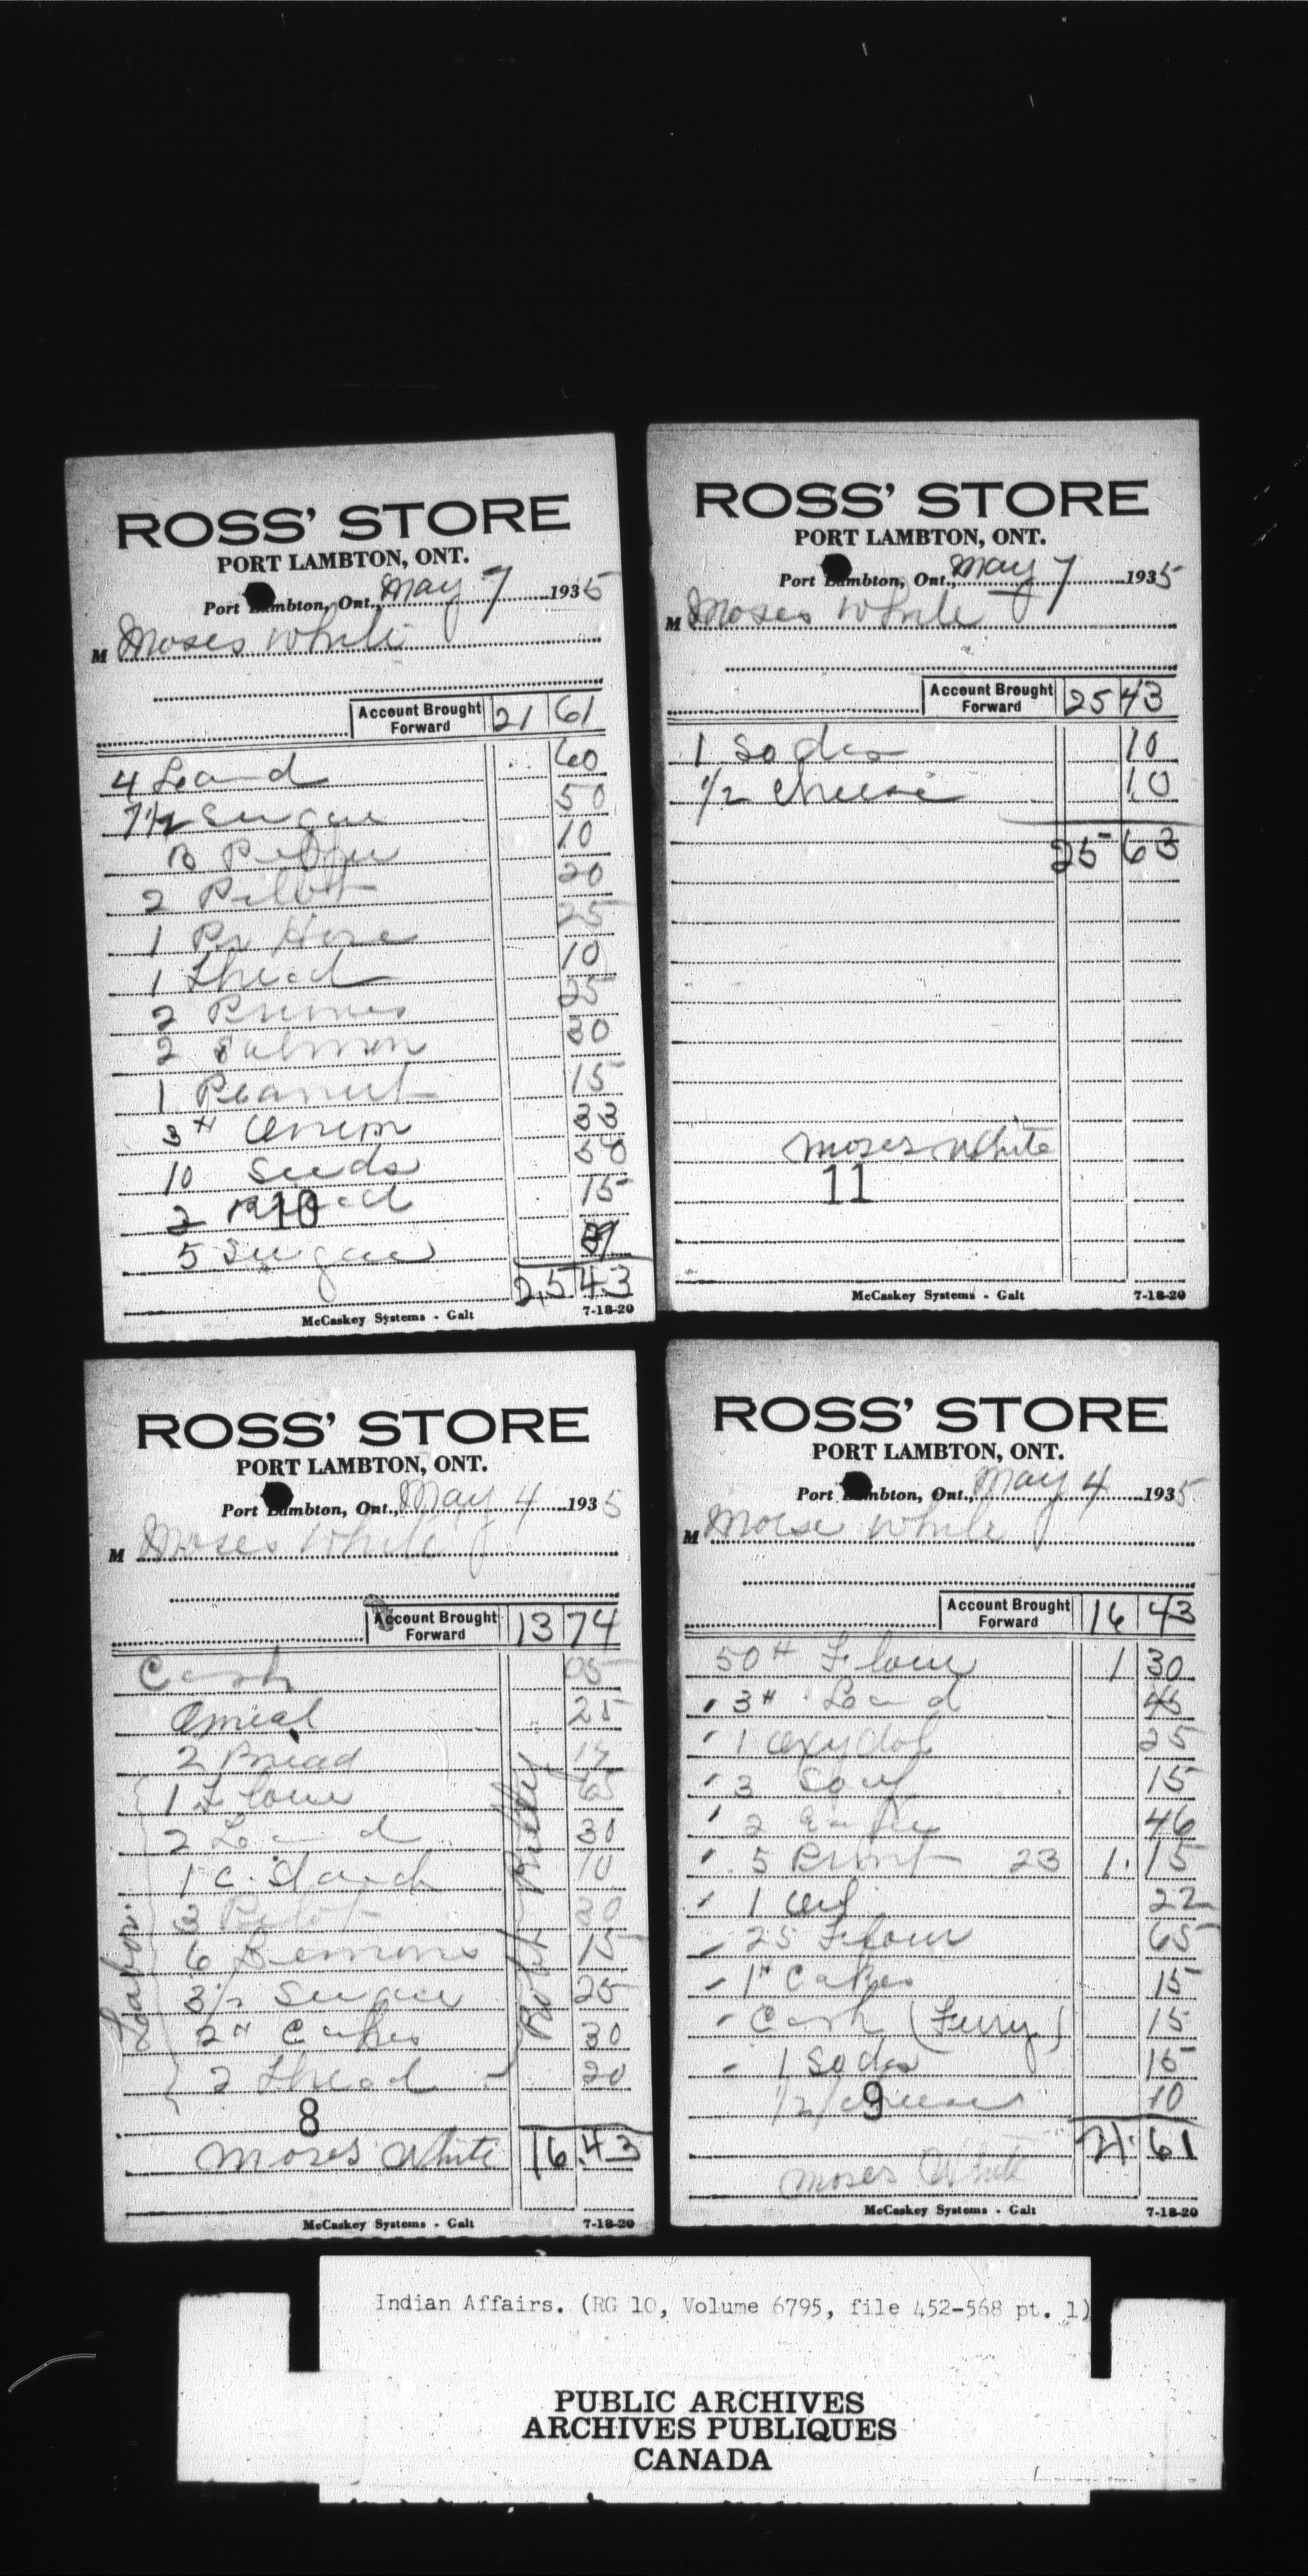 ROSS' STORE
PORT LAMBTON, ONT.
Port Lambton, Ont., May 7 1935
M Moses White
Account Brought Forward 21 61
4 Lard 60
7 1/2 Sugar 50
B Pepper 10
2 Pilot 20
1 Pr Hose 25
1 Thread 10
2 Prunes 25
2 Salmon 30
1 Peanut 15
3 # Onion 33
10 Seeds 50
2 Bread 15
10
5 Sugar
25 43
McCaskey Systems - Galt 7-18-20
ROSS' STORE
PORT LAMBTON, ONT.
Port Lambton, Ont., May 7 1935
M Moses White
Account Brought Forward 25 43
1 Sodas 10
1/2 Cheese 10
25 63
Moses White
11
McCaskey Systems - Galt 7-18-20
ROSS' STORE
PORT LAMBTON, ONT.
Port Lambton, Ont., May 4 1935
M Moses White
Account Brought Forward 13 74
Cash 05
Omeal 25
2 Bread 14
1 Flour 65
2 Lard 30
1 C. Starch 10
3 Pilot 30
6 Lemons 15
3 1/2 Sugar 25
2 # Cakes 30
2 Thread 20
8
Moses White 16.43
McCaskey Systems - Galt 7-18-20
ROSS' STORE
PORT LAMBTON, ONT.
Port Lambton, Ont., May 4 1935
M Moese White
Account Brought Forward 16 43
50 # Flour 1 30
3 # Lard 45
1 Oxydol 25
3 Soap 15
2 46
5 Print 23 1. 15
1 Oil 22
25 Flour 65
1 # Cakes 15
Cash (Ferry) 15
1 Sodas 15
1/2 Cheese 10
9
21.61
Moses White
McCaskey Systems - Galt 7-18-20
Indian Affairs. (RG 10, Volume 6795, file 452-568 pt. 1)
PUBLIC ARCHIVES
ARCHIVES PUBLIQUES
CANADA